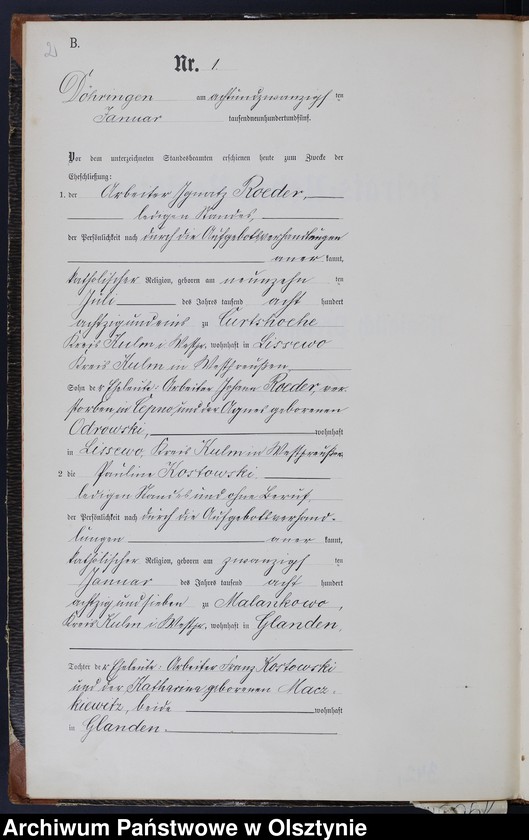 2
B.
Nr. 1.
Döhringen am achtundzwanzigs ten
Januar tausendneunhundertundfünf.
Vor dem unterzeichneten Standesbeamten erschienen heute zum Zwecke der
Eheschließung:
1. der Arbeiter Ignatz Roeder,
ledigen Standes,
der Persönlichkeit nach durch die Aufgebotsverhandlungen
aner kannt,
katholischer Religion, geboren am neunzehn ten
Juli des Jahres tausend acht hundert
achtzig und eins zu
Kreis Kulm i/Westpr. wohnhaft in Lissewo
Kreis Kulm in Westpreußen,
Sohn der Eheleute: Arbeiter Johann Roeder, ver-
storben zu und der Agnes geborenen
Odrowski, wohnhaft
in Lissewo, Kreis Kulm in Westpreußen
2 die Pauline Kostowski
ledigen Standes und ohne Beruf,
der Persönlichkeit nach durch die Aufgebotsverhand-
lungen aner kannt,
katholischer Religion, geboren am zwanzigs ten
Januar des Jahres tausend acht hundert
achtzig und sieben zu Malankowo,
Kreis Kulm i/Westpr. wohnhaft in Glanden,
Tochter der Eheleute: Arbeiter Franz Kostowski
und der Katharina geborenen Macz-
kiewitz, beide wohnhaft
in Glanden.
Archiwum Państwowe w Olsztynie